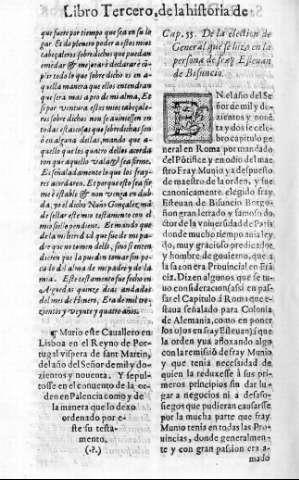 Libro Tercero, de la historia de
que fuere por tiempo que sea en su lu
gar. Et do plenero poder a estos mis
cabeçaleros sobredichos que puedan
emẽdar & mejorar & declarar & cũ
plir todo lo que sobre dicho es en a-
quella manera que ellos entendran
que sera mas a pro de mi alma. Et
si por ventura estos mis cabeçale-
ros sobre dichos non se auiniessen en
todas estas cosas que sobredichas son
o en qualquier dellas, mando que a-
quello que los quatro dellos acorda
ren que aquello vala & sea firme.
Et señaladamente lo que los fray-
res acordaren. Et porque esto sea fir
me è estable & non venga en dub-
da, yo el dicho Nuño Gonçalez mã
de sellar este mio testamiento con el
mio sello pendiente. Et mando que
de la mi heredad que fue de mi pa-
dre que no tomen dello, sino si enten
dieren que la puedan tomar sin pe-
cado del alma de mi padre y de la
mia. Este testamento fue fecho en
Agreda quinze dias andados
del mes de Hinero, Era de mil tre-
zientos y veynte y quatro años.
¶ Murio este Cauallero en
Lisboa en el Reyno de Por-
tugal vispera de sant Martin,
del año del Señor de mil y do-
zientos y nouenta. Y sepul-
tosse en el conuento de la or-
den en Palencia como y de
la manera que lo dexo
ordenado por e-
ste su testa-
mento.
(.?.)
Cap. 55. De la election de
General que se hizo en la
persona de fray Esteuan
de Bisuncio.
EN el año del Se
ñor de mil y do-
zientos y noue-
ta y dos se cele-
bro capitulo ge
neral en Roma por mandado
del Põtifice y en odio del mae
stro Fray Munio ya depuesto
de maestro de la orden, y fue
canonicamente elegido fray
Esteuan de Bisuncio Borgo-
ñon gran letrado y famoso do
ctor de la vniuersidad de Paris
donde mucho tiempo auia ley
do, muy gracioso predicador
y hombre de gouierno, que a
la sazon era Prouincial en Frã
cia. Dizen algunos que se tu-
uo consideracion (assi en pas-
sar el Capitulo à Roma que e-
staua señalado para Colonia
de Alemania, como en poner
los ojos en fray Esteuan) a que
la orden yua afloxando algo
con la remissiõ de fray Munio
y que tenia necessidad de
quien la reduxesse à sus pri
meros principios sin dar lu-
gar a negocios ni a desaso-
siegos que pudieran causarse
por la mucha parte que fray
Munio tenia en todas las Pro
uincias, donde generalmen-
te y con gran passion era a-
mado